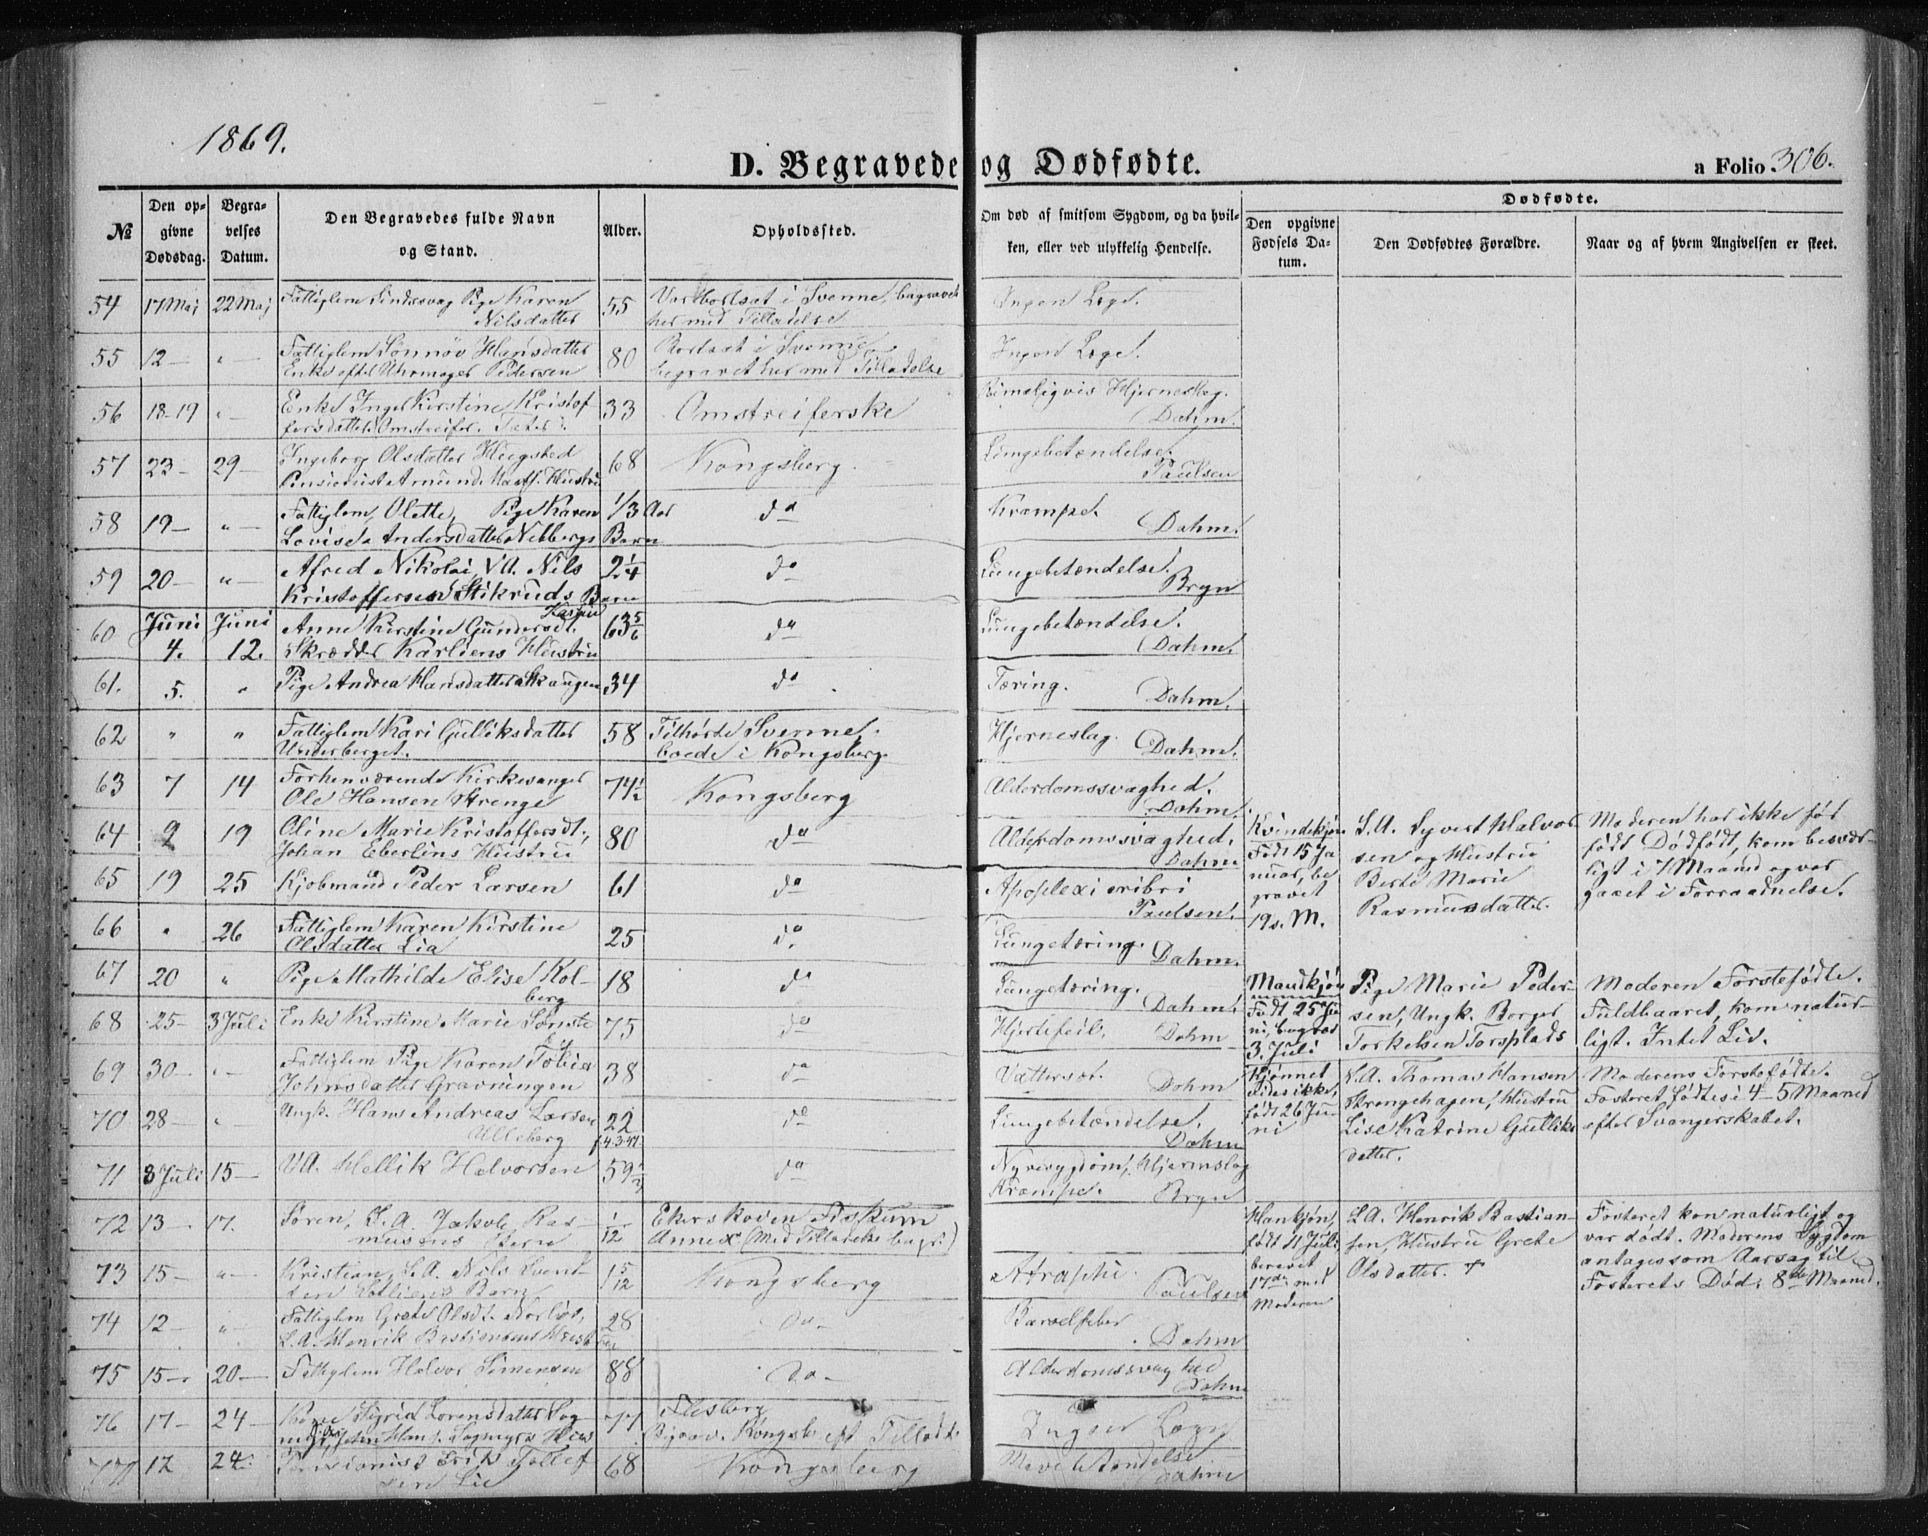 1869.
D. Begravede og Dødfødte.
a Folio 306.
№
Den opgivne Dødsdag.
Begravelses Datum.
Den Begravedes fulde Navn og Stand.
Alder.
Opholdssted.
Om død af smitsom Sygdom, og da hvilken, eller ved ulykkelig Hendelse.
Dødfødte.
Den opgivne Fødsels Datum.
Den Dødfødtes Forældre.
Naar og af hvem Angivelsen er skeet.
54 17 Maj 22 Maj Fattiglem Sindssvag Pige Karen 55 Var bortsat i Svenne, begravet Ingen Læge.
Nilsdatter her med Tilladelse
55 12 — " — Fattiglem Sønnøv Hansdatter 80 Bortsat i Svenne, Ingen Læge.
Enke efter Uhrmager Pedersen begravet her med Tilladelse
56 18-19 " — Enke Inger Kirstine Kristof 33 Omstreiferske Rimeligvis Hjerneslag.
fersdatter, Omstreifer. Dahm.
57 23 — 29 — Ingeborg Olsdatter 68 Kongsberg Lungebetændelse.
Pensionist Amund Hustru Paulsen
58 19 — " — Fattiglem, Olette, Pige Karen 1/3 Aar do Krampe.
Lovise Andersdatter Nebbergs Barn Dahm.
59 20 — " — Afred Nikolai, V.A. Nils 2 1/4 do Lungebetændelse.
Kristoffersen Stikruds Barn Bryn
60 Juni 4. Juni 12. Anne Kirstine Gundersdt. 63 5/6 do Lungebetændelse.
Skrædder Karlsens Hustru Dahm.
61. 5. " Pige Andrea Hansdatter Skaugen 34 do Tæring. Dahm.
62 " " Fattiglem Kari Gulliksdatter 58 Tilhørte Svenne, Hjerneslag. Dahm.
Underberget. boede i Kongsberg
63 7 14 Forhenværende Kirkesanger 74 1/2 Kongsberg Alderdomssvaghed.
Ole Hansen Strenge Dahm.
64 9 19 Oline Marie Kristoffersdt., 80 do Alderdomssvaghed.
Johan Eberlins Hustru Dahm
Kvindekjøn Født 15 Januar, begravet 19 s. M.
S.A. Syvert Halvorsen og Hustru Berte Marie Rasmusdatter.
Moderen har ikke før født Dødfødt, kom besværligt i 7 Maaned og var gaaet i Forraadnelse.
65 19 25 Kjøbmand Peder Larsen 61 do Apoplexi cribri
Paulsen.
66 " 26 Fattiglem Karen Kirstine 25 do Lungetæring.
Olsdatter Lia Dahm.
67 20 " Pige Mathilde Elise Kol- 18 do Lungetæring.
berg Dahm.
Mandkjøn Født 25 Juni, begrav 3. Juli
Pige Marie Pedersen, Ungk. Borger Torkelsen Torsplads
Moderen Førstefødte. Fuldbaaret, kom naturligt. Intet Liv.
68 25 — 3 Juli Enke Kirstine Marie Sønste 75 do Hjertefeil. Dahm
by
69 30 — " — Fattiglem Pige Karen Tobia 38 do Vattersot. Dahm
Johnsdatter Gravningen
Kjønnet vides ikke, født 26 Juni
V.A. Thomas Hansen Strengehagen, Hustru Lise Katrine Gulliksdatter.
Moderens Førstefødte. Fosteret fødtes i 4-5 Maaned efter Svangerskabet.
70 28 — " Ungk. Hans Andreas Larsen 22 do Lungebetændelse.
Ulleberg f. 4.3.47 Dahm
71 8 Juli 15 — V.A. Hellik Halvorsen 59 1/2 do Nyresygdom, Hjerneslag
Krampe. Bryn
72 13 — 17. Søren, S.A. Jakob Ras- 1/12 Ekerskoven Fiskum
musens Barn Annex (med Tilladelse begr.)
Hankjøn, født 11 Juli beravet 17de med Moderen
L.A. Henrik Bastiansen, Hustru Grete Olsdatter. +
Fosteret kom naturligt og var dødt. Moderens Sygdom antages som Aarsag til Fosterets Død. 8de Maaned.
73 15 — " — Kristian, L.A. Nils 1 5/12 Kongsberg Atrophi.
Barn Paulsen
74 12 — " — Fattiglem Grete Olsdt. 28 do Barselfeber
L.A. Henrik Bastiansens Hustru Dahm
75 15 — 20 — Fattiglem Halvor Simensen 88 do Alderdomssvaghed
Dahm
76 17 — 24 — Kone Sigrid Lorensdatter 77 Flesberg Ingen Læge
John Hans. Begrav. Kongsb. eft. Tillad.
77 17 24 Pensionist Erik Tollef 68 Kongsberg Mavebetændelse
sen Lie Dahm